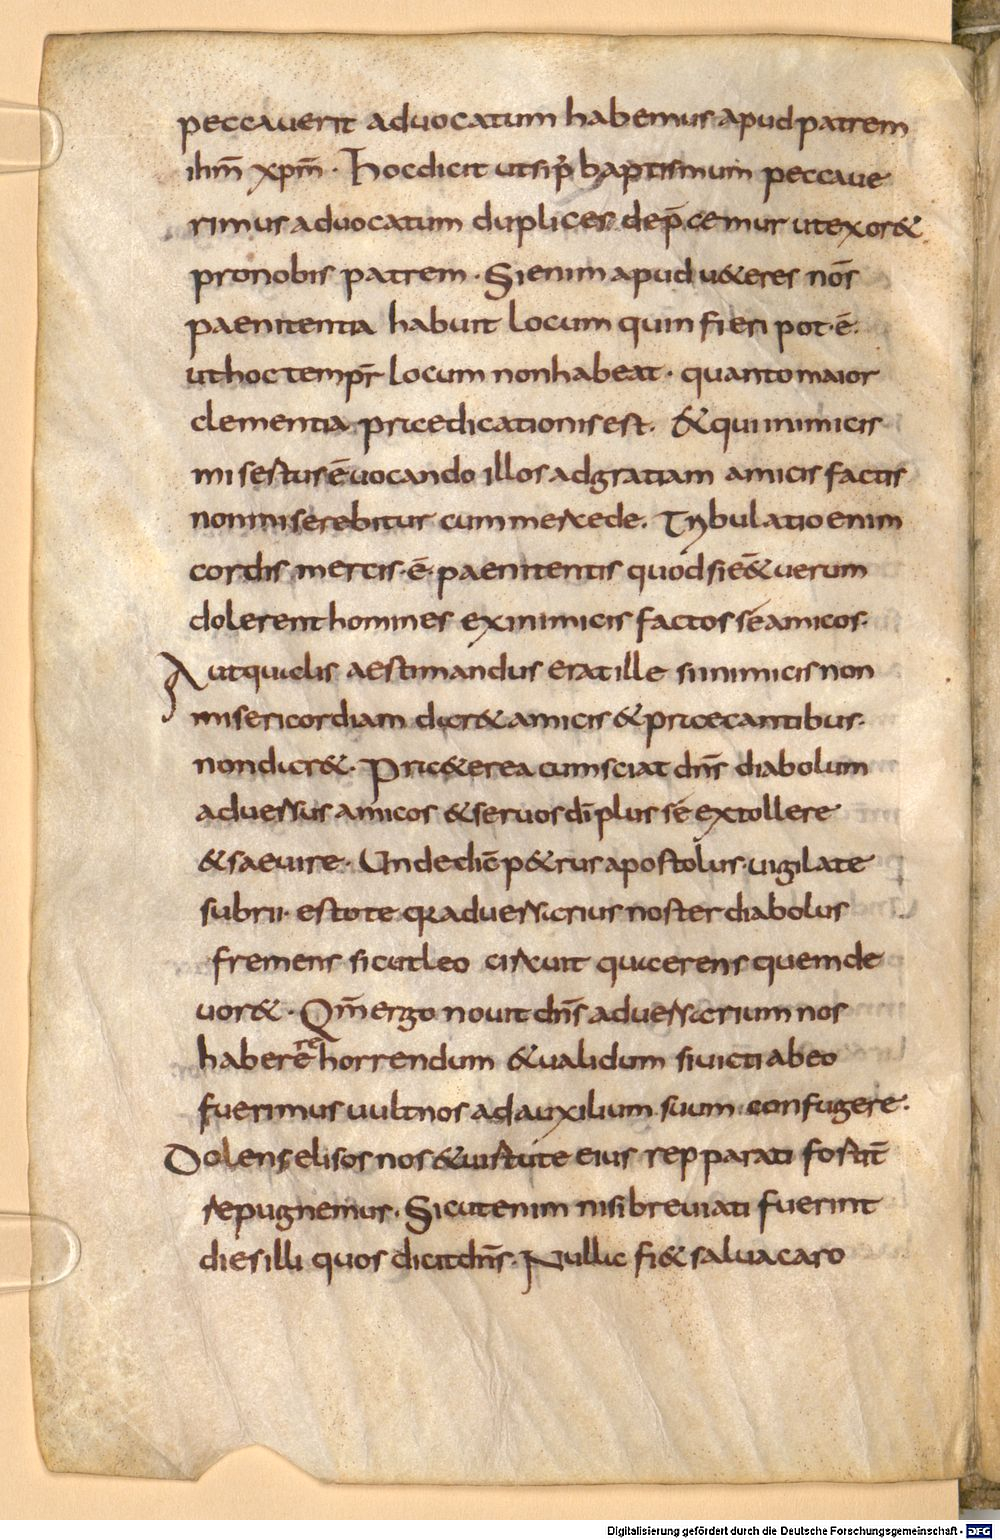 peccauerit aduocatum habemus apud patrem
ihm̄ xpm̄ · hoc dicit ut si p̄ baptismum peccaue
rimus aduocatum duplices dep̄cemur ut exor&
pro nobis patrem · Si enim apud u&eres nōs
paenitentia habuit locum quin fieri pot·ē·
ut hoc temp̄r locum non habeat · quanto maior
clementia praedicationis est · & qui inimicis
misertus ē uocando illos ad gratiam amicis factis
non miserebitur cum mercede · Tribulatio enim
cordis mercis·ē· paenitentis quod si ē& uerum
dolerent homines ex inimicis factos se amicos ·
Aut qualis aestimandus erat ille si inimicis non
misericordiam dar& amicis & praecantibus·
non dar& · Pra&erea cum sciat dn̄s diabolum
aduersus amicos & seruos dī plus se extollere
& saeuire · Unde dic̄ p&rus apostolus · uigilate
subrii · estote qr aduersarius noster diabolus
fremens sicut leo circuit quaerens quem de
uor& · Qm̄ ergo nouit dn̄s aduersarium nos
haberere horrendum & ualidum si uicti ab eo
fuerimus uult nos ad auxilium suum confugere ·
Dolens elisos nos & uirtute eius repparati fortit̄
repugnemus · Sicut enim nisi breuiati fuerint
dies illi quos dicit dn̄s · Nulla fi& salua caro
Digitalisierung gefördert durch die Deutsche Forschungsgemeinschaft - DFG